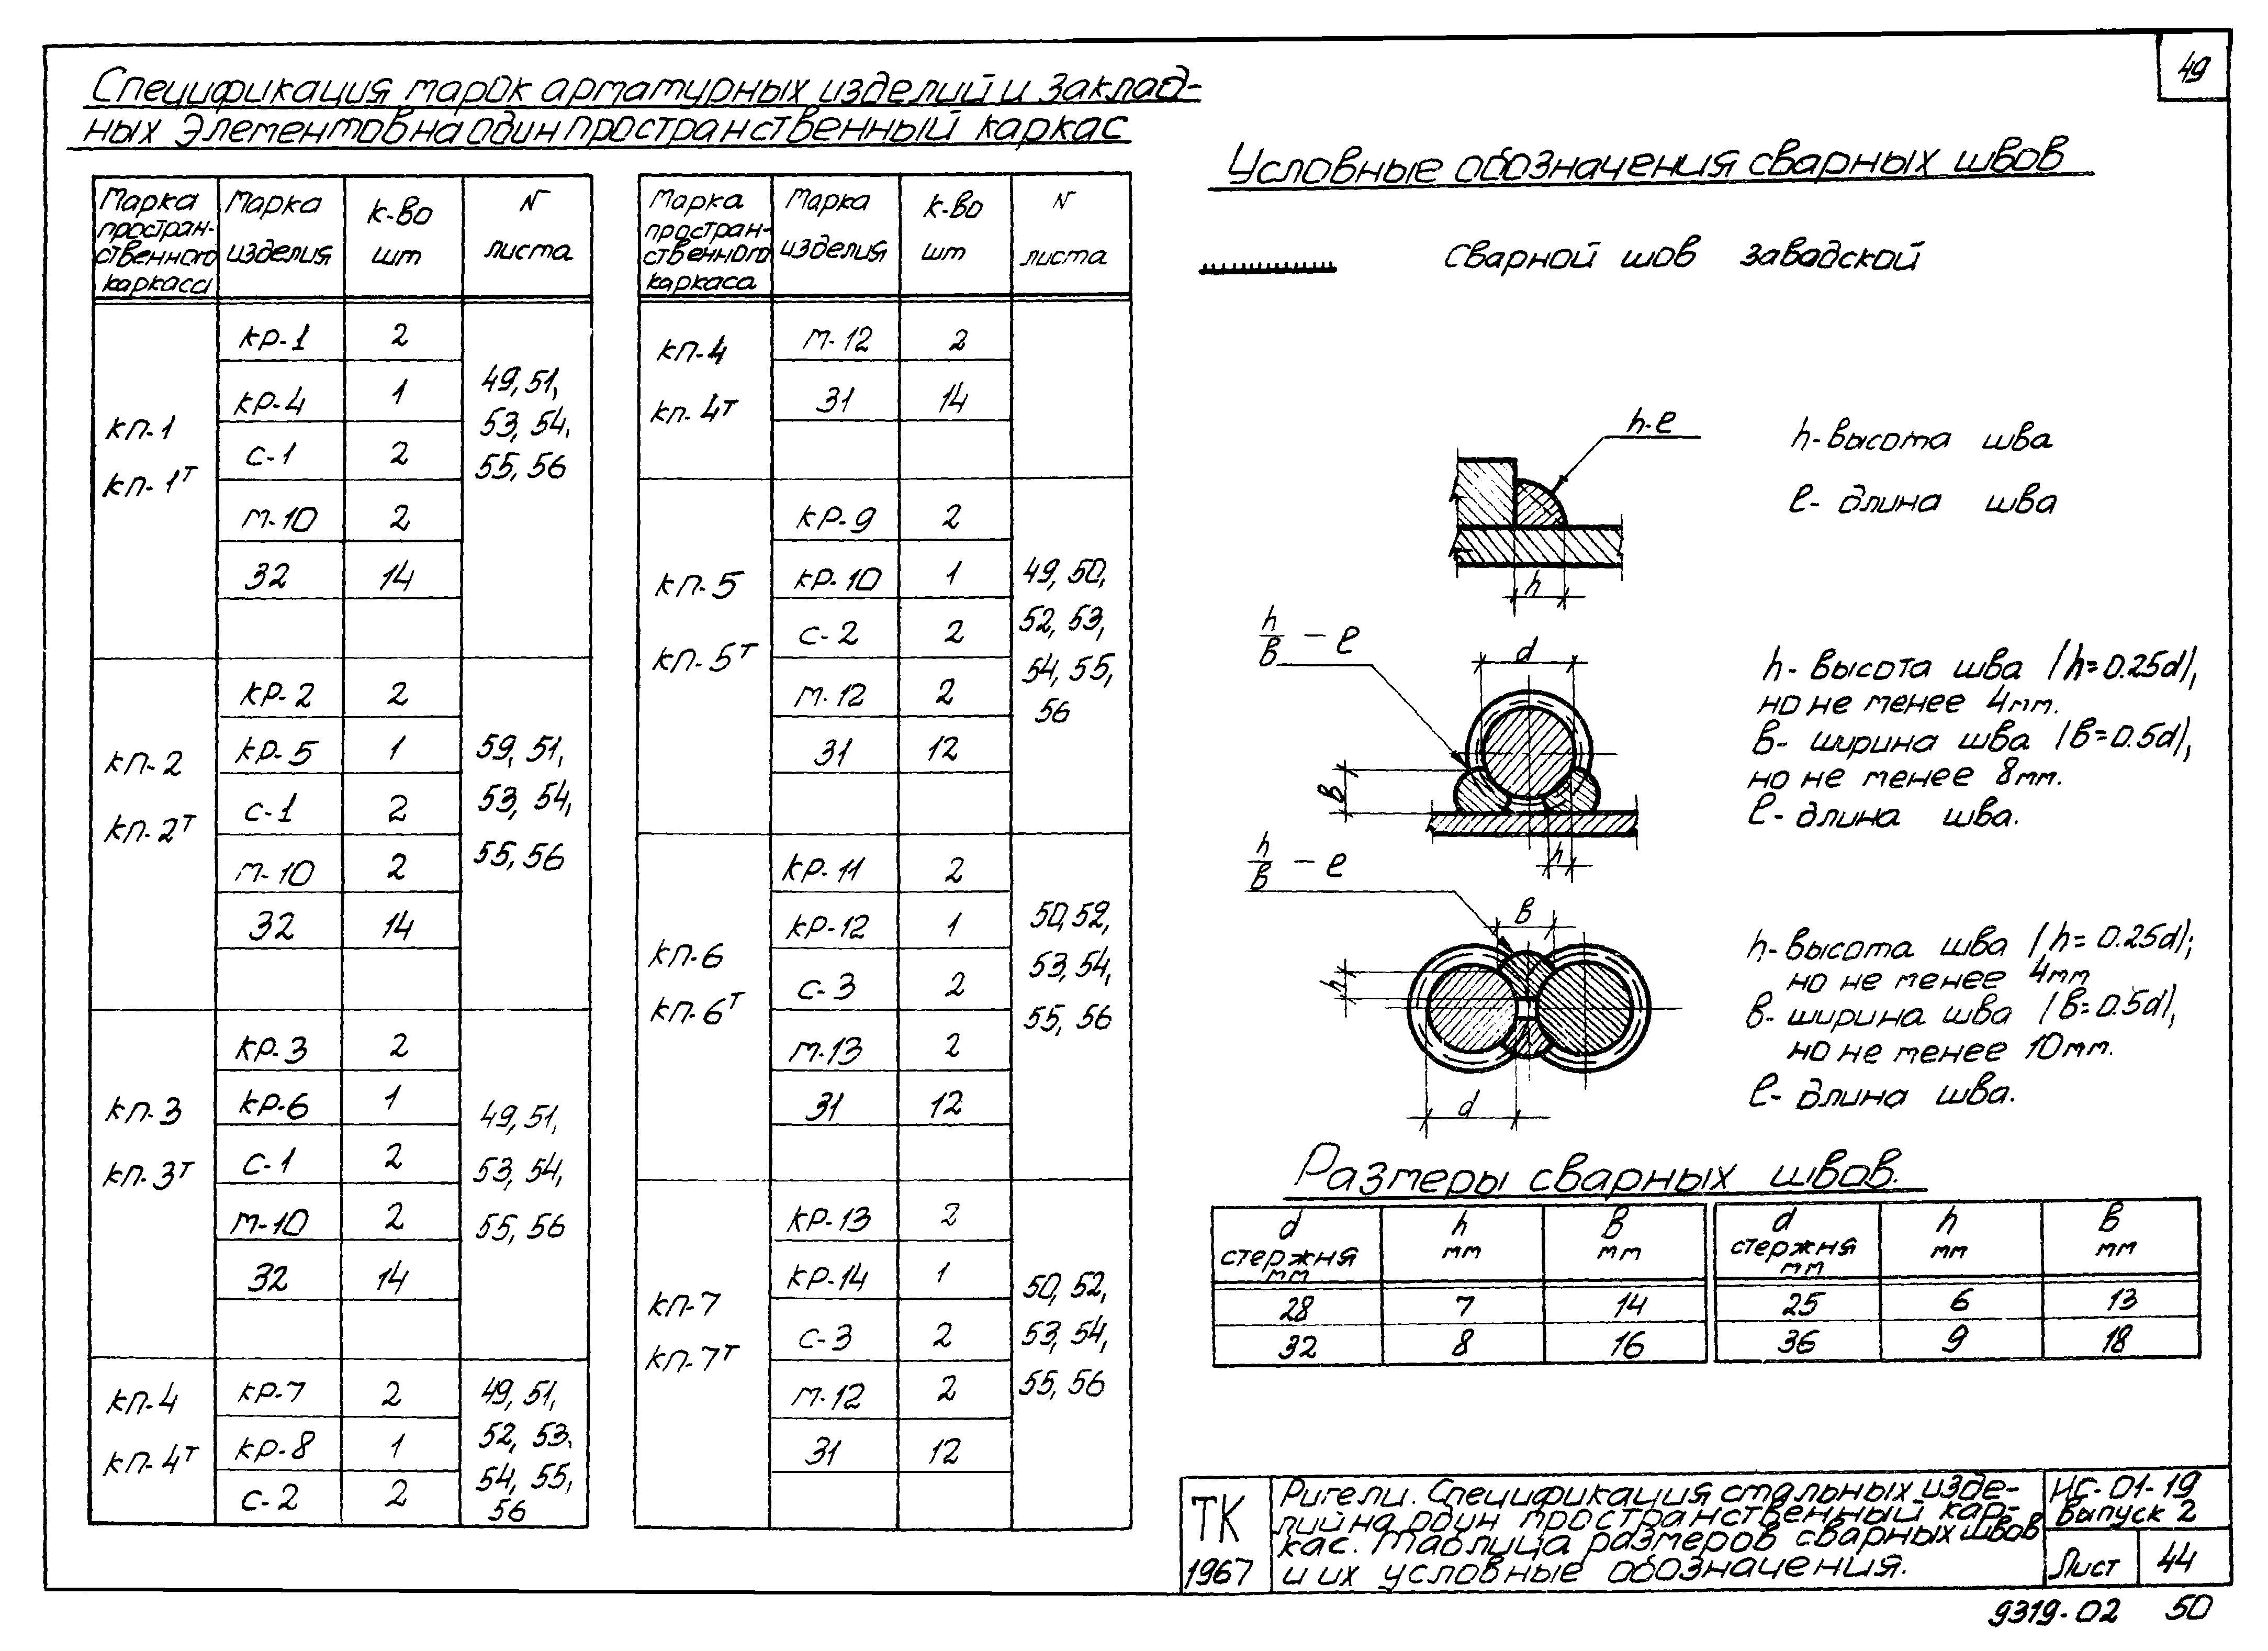 49
Спецификация марок арматурных изделий и заклад-
ных элементов на один пространственный каркас
Марка пространственного каркаса | Марка изделия | к-во шт | N листа
КП-1 КП-1т | КР-1 | 2 | 49, 51, 53, 54, 55, 56
КР-4 | 1
С-1 | 2
М-10 | 2
32 | 14
КП-2 КП-2т | КР-2 | 2 | 59, 51, 53, 54, 55, 56
КР-5 | 1
С-1 | 2
М-10 | 2
32 | 14
КП-3 КП-3т | КР-3 | 2 | 49, 51, 53, 54, 55, 56
КР-6 | 1
С-1 | 2
М-10 | 2
32 | 14
КП-4 КП-4т | КР-7 | 2 | 49, 51, 52, 53, 54, 55, 56
КР-8 | 1
С-2 | 2
Марка пространственного каркаса | Марка изделия | к-во шт | N листа
КП-4 КП-4т | М-12 | 2
31 | 14
КП-5 КП-5т | КР-9 | 2 | 49, 50, 52, 53, 54, 55, 56
КР-10 | 1
С-2 | 2
М-12 | 2
31 | 12
КП-6 КП-6т | КР-11 | 2 | 50, 52, 53, 54, 55, 56
КР-12 | 1
С-3 | 2
М-13 | 2
31 | 12
КП-7 КП-7т | КР-13 | 2 | 50, 52, 53, 54, 55, 56
КР-14 | 1
С-3 | 2
М-12 | 2
31 | 12
Условные обозначения сварных швов
сварной шов завадской
h-ℓ
h
h-высота шва
ℓ- длина шва
h/в - ℓ
d
в
h
h- высота шва /h=0.25d/,
но не менее 4мм.
в- ширина шва /в=0.5d/,
но не менее 8мм.
ℓ- длина шва.
h/в - ℓ
в
h
d
h-высота шва /h= 0.25d/;
но не менее 4мм
в- ширина шва /в=0.5d/,
но не менее 10мм.
ℓ- длина шва.
Размеры сварных швов.
d стержня мм | h мм | в мм | d стержня мм | h мм | в мм
28 | 7 | 14 | 25 | 6 | 13
32 | 8 | 16 | 36 | 9 | 18
ТК
1967
Ригели. Спецификация стальных изде-
лий на один пространственный кар-
кас. Таблица размеров сварных швов
и их условные обозначения.
ИС-01-19
Выпуск 2
Лист 44
9319-02 50